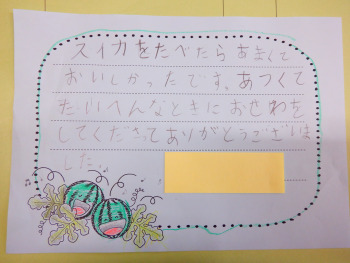 スイカをたべたらあまくて
おいしかったです。あつくて
たいへんなときにおせわを
してくださってありがとうございま
した。